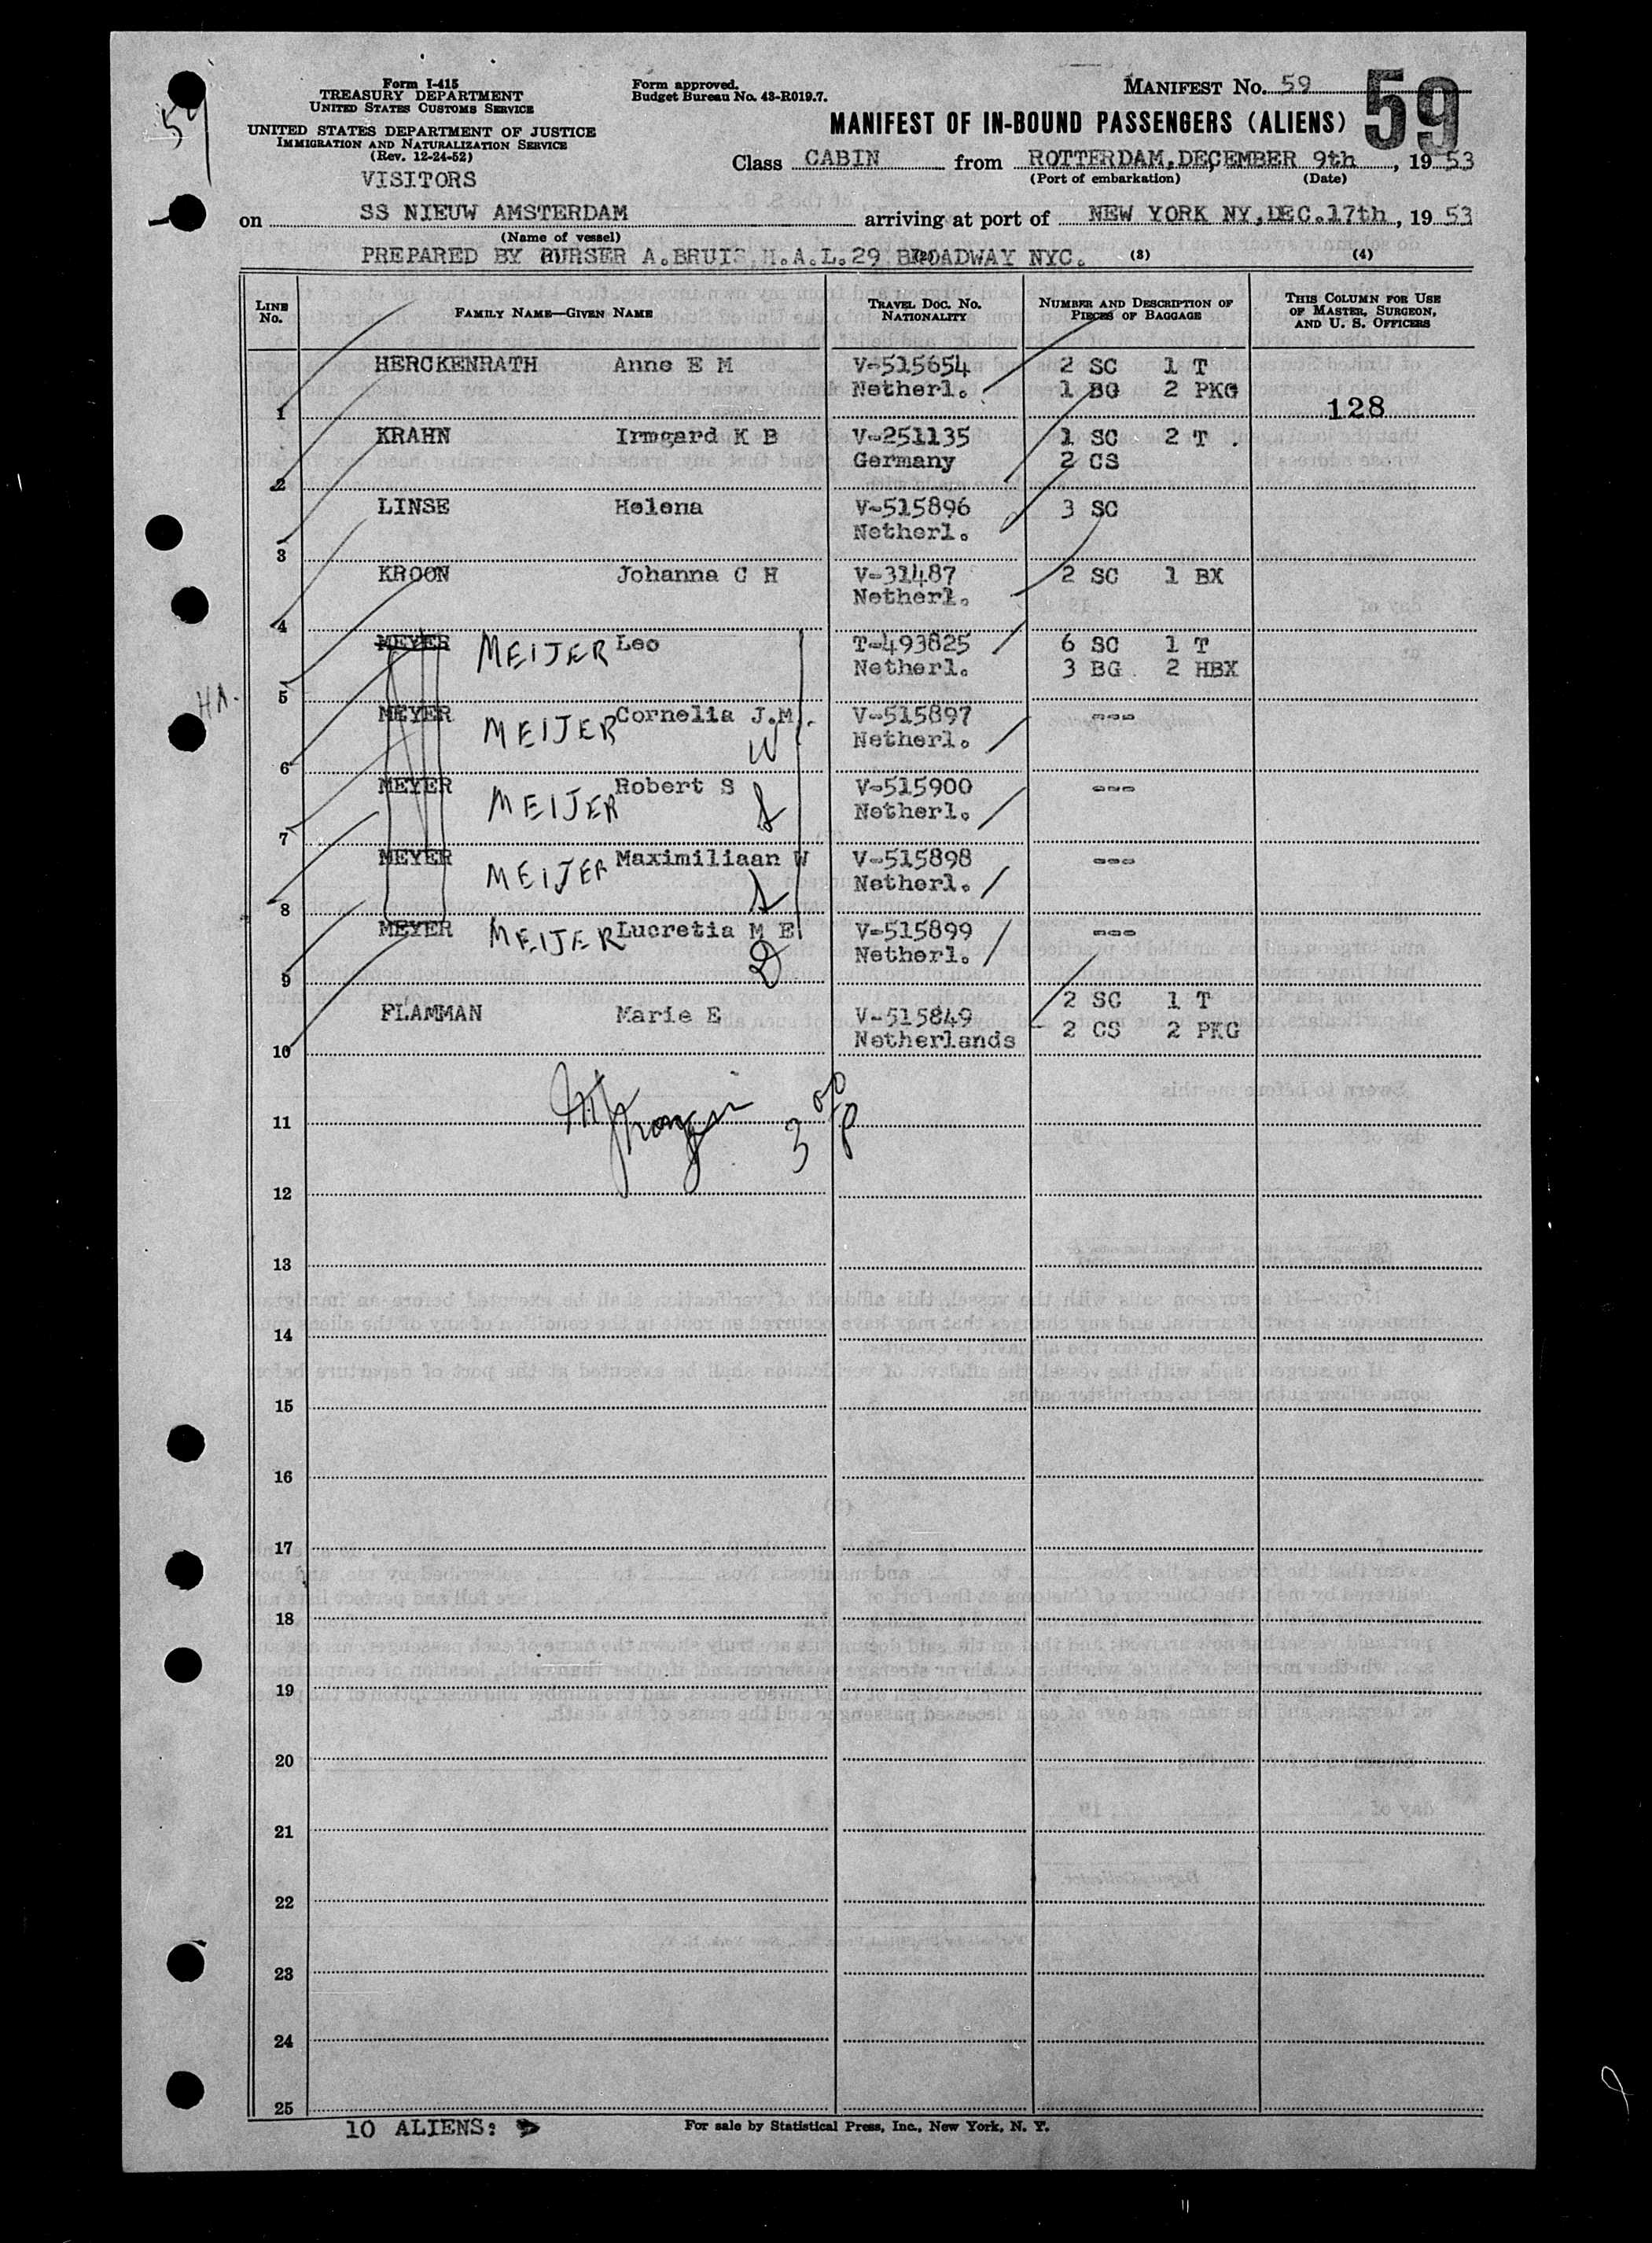 Form I-415
TREASURY DEPARTMENT
UNITED STATES CUSTOMS SERVICE
UNITED STATES DEPARTMENT OF JUSTICE
IMMIGRATION AND NATURALIZATION SERVICE
(Rev. 12-24-52)
Form approved.
Budget Bureau No. 43-R019.7.
MANIFEST No. 59
59
59
MANIFEST OF IN-BOUND PASSENGERS (ALIENS)
Class CABIN from ROTTERDAM, DECEMBER 9th, 1953
(Port of embarkation) (Date)
VISITORS
on SS NIEUW AMSTERDAM arriving at port of NEW YORK NY, DEC. 17th, 1953
(Name of vessel)
PREPARED BY PURSER A.BRUIS, H.A.L. 29 BROADWAY NYC. (3) (4)
LINE No. FAMILY NAME—GIVEN NAME TRAVEL DOC. NO. NATIONALITY NUMBER AND DESCRIPTION OF PIECES OF BAGGAGE THIS COLUMN FOR USE OF MASTER, SURGEON, AND U. S. OFFICERS
1 HERCKENRATH Anne E M V-515654 Netherl. 2 SC 1 T 1 BG 2 PKG 128
2 KRAHN Irmgard K B V-251135 Germany 1 SC 2 T . 2 CS
3 LINSE Helena V-515896 Netherl. 3 SC
4 KROON Johanna C H V-31487 Netherl. 2 SC 1 BX
5 MEYER MEIJER Leo T-493825 Netherl. 6 SC 1 T 3 BG 2 HBX
HA.
6 MEYER MEIJER Cornelia J.M. W V-515897 Netherl. ---
7 MEYER MEIJER Robert S S V-515900 Netherl. ---
8 MEYER MEIJER Maximiliaan W S V-515898 Netherl. ---
9 MEYER MEIJER Lucretia M E D V-515899 Netherl. ---
10 FLAMMAN Marie E V-515849 Netherlands 2 SC 1 T 2 CS 2 PKG
11
12
13
14
15
16
17
18
19
20
21
22
23
24
25
10 ALIENS:
For sale by Statistical Press, Inc., New York, N. Y.